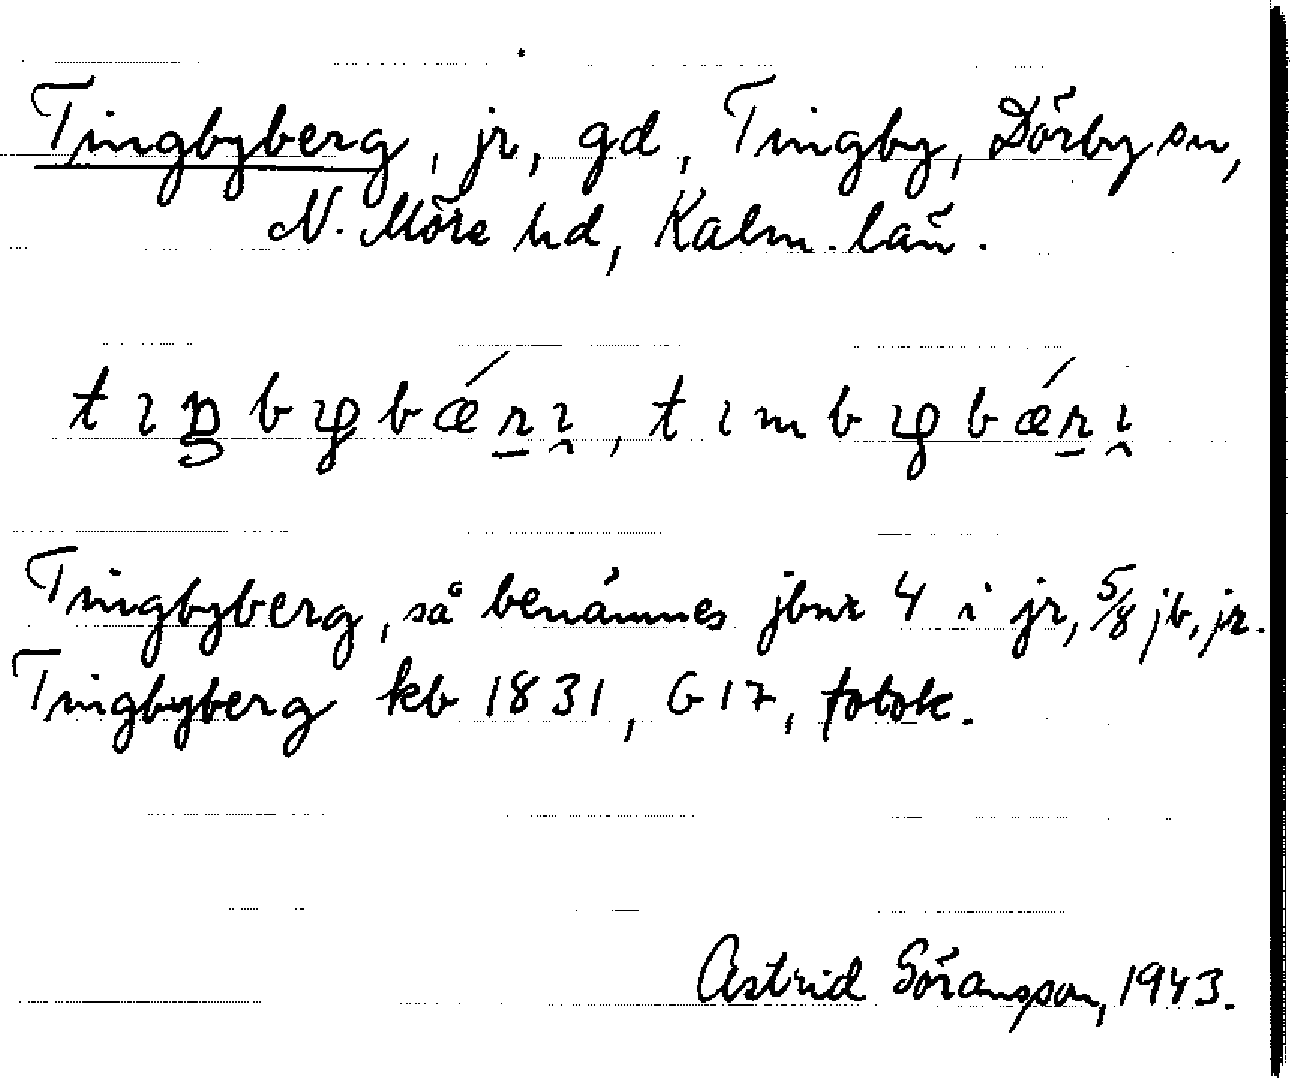 Tingbyberg, jr, gd, Tingby, Dörby sn,
N. Möre hd, Kalm. län.
Tingbyberg, så benämnes jbnr 4 i jr, 5/8 jb, jr.
Tingbyberg kb 1831, G 17, fotok.
Astrid Göransson, 1943.